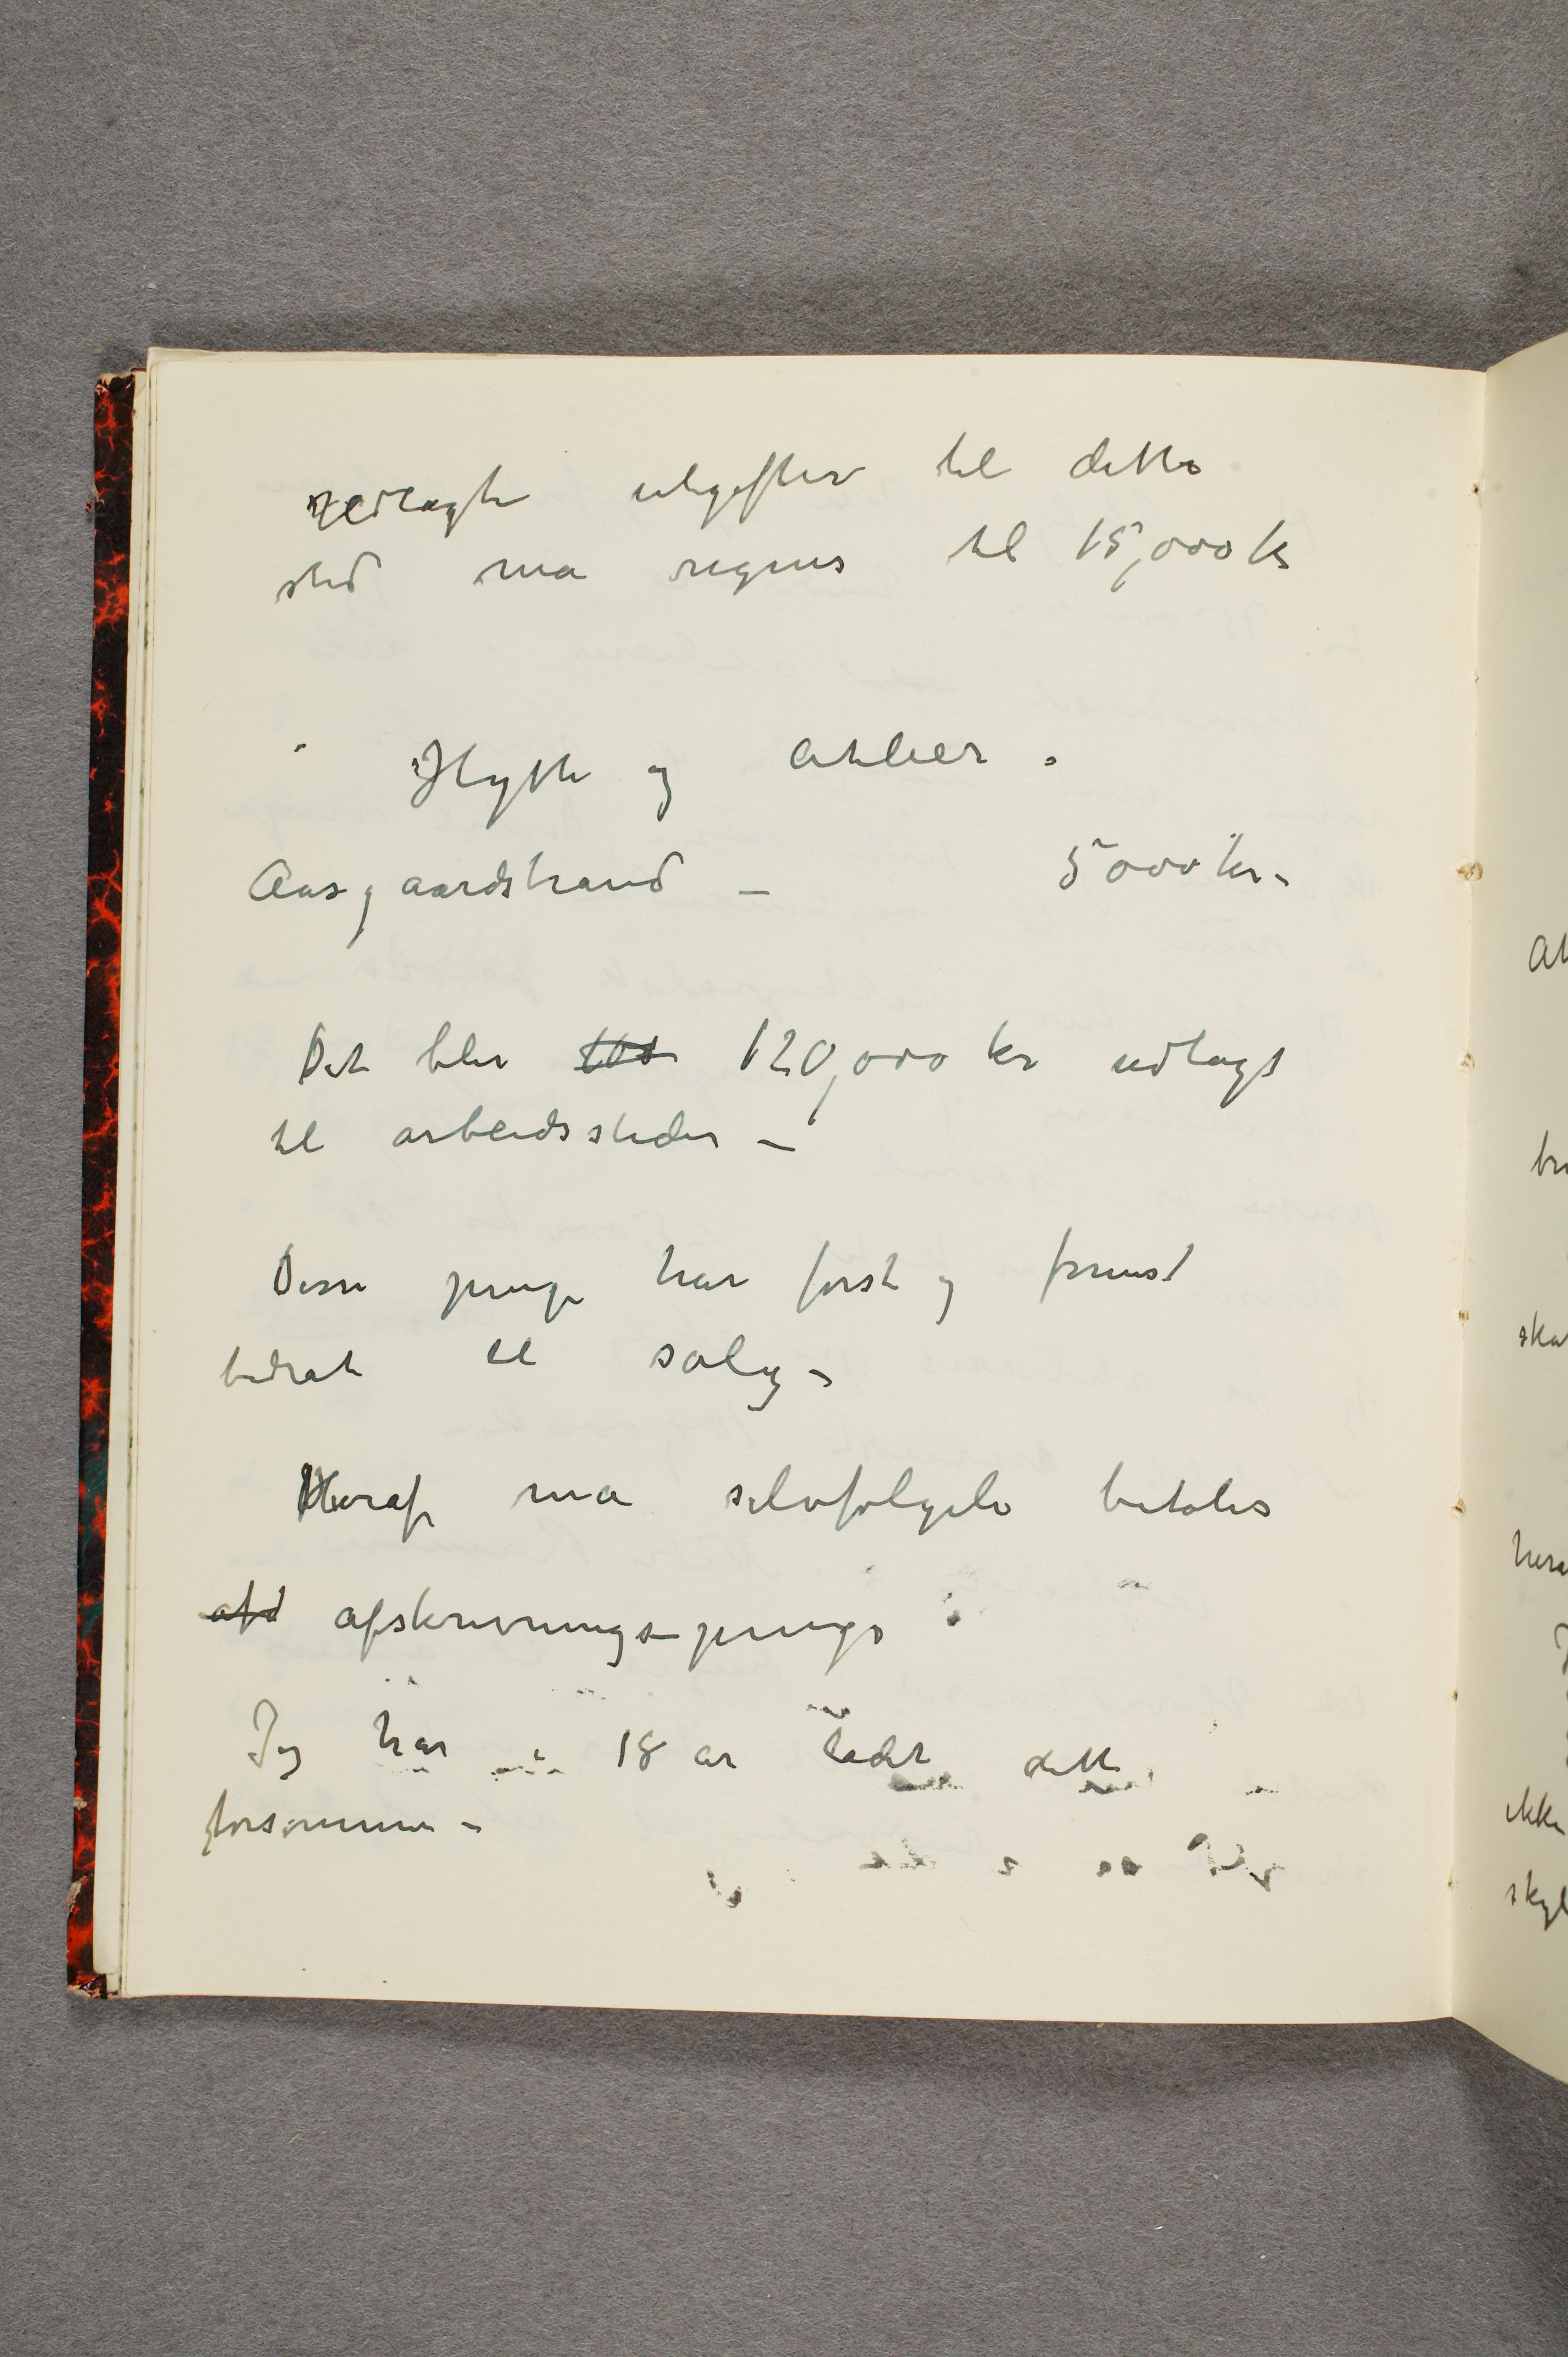 udlagte utgifter til dette
sted ma regnes til 15,000 kr
Hytte og Atelier.
Aasgaardstrand – 5000 kr.
Det blir 120,000 kr udlagt
til arbeidssteder –
Disse penge har først og fremst
bidrat til salg –
Heraf ma selvfølgeli betales
afd afskrivnings-penge
Jeg har i 18 ar ladet dette
forsømme –
At
bri
ska
hera
J
ikke
skyl